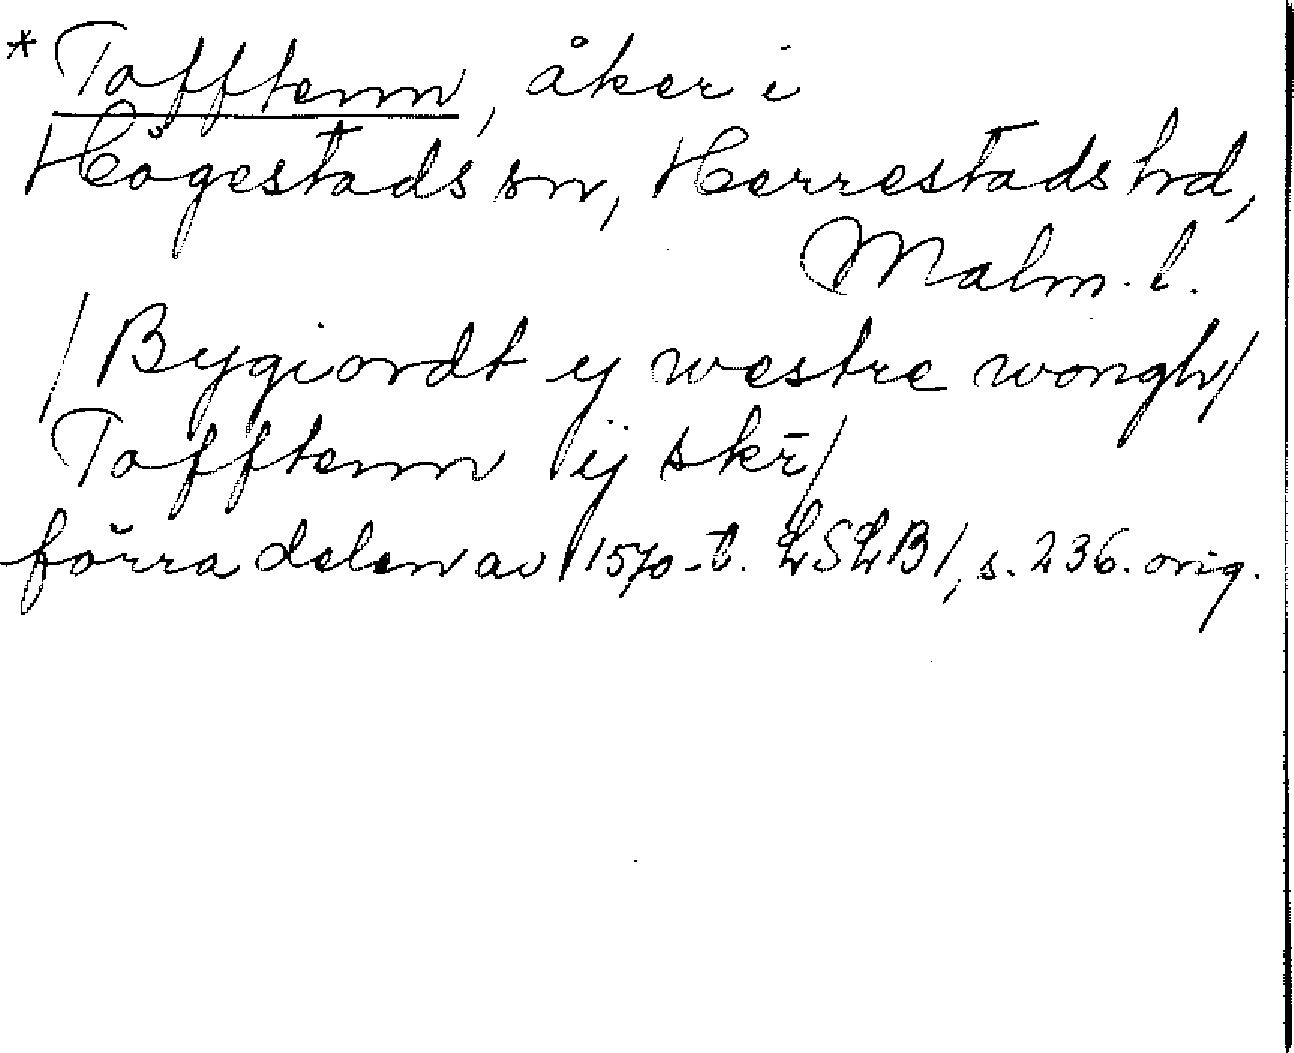 * Tofftenn, åker i
Högestads sn, Herrestads hd,
Malm. l.
/Bygiordt ij westre wongh/
Tofftenn ij skr̄/
förra delen av 1570-t. LSLB1, s. 236. orig.